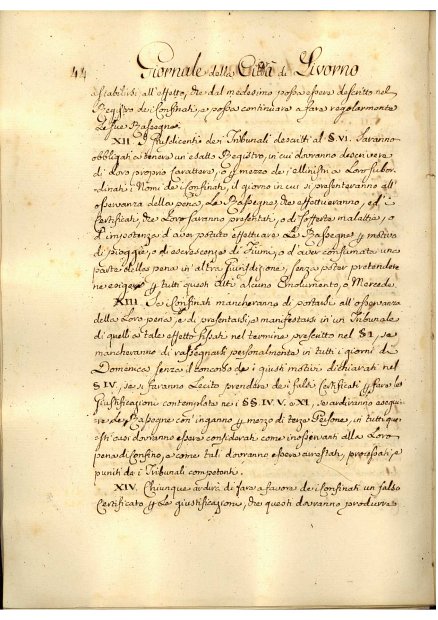 44 Giornale della Città di Livorno
stabilirsi all'effetto, che dal medesimo possa essere descritto nel
Registro de i Confinati, e possa continuare a fare regolarmente
Le sue Rassegne.
XII. I Giusdicenti de i Tribunali descritti al §. VI. Saranno
obbligati a tenere un'esatto Registro, in cui dovranno descrivere
di Loro proprio Carattere, o p mezzo de i Ministri a Loro subor-
dinati i Nomi de i Confinati, il giorno in cui si presenteranno all'
osservanza della pena, Le Rassegne, che effettueranno, ed i
Certificati, che Loro saranno presentati, o di sofferte malattie, o
d'impotenza d'aver potuto effettuare Le Rassegne p motivo
di pioggie, o di escrescenze di Fiumi, o d'aver consumata una
parte della pena in altra Giurisdizione, senza poter pretendere
ne esigere p tutti questi Atti alcuno Emolumento, o Mercede.
XIII. Se i Confinati mancheranno di portarsi all'osservanza
della Loro pena, e di presentarsi, e manifestarsi in un Tribunale
di quelli a tale effetto fissati nel termine prescritto nel § I., se
mancheranno di rassegnarsi personalmente in tutti i giorni di
Domenica senza il concorso de i giusti motivi dichiarati nel
§ IV., se si faranno Lecito prendere de i falsi Certificati p fare le
Giustificazioni contemplate ne i §§. IV. V. e XI., se ardiranno eseguire
Le Rassegne con inganno p mezzo di terze Persone, in tutti que-
sti casi dovranno essere considerati come inosservanti alla Loro
pena di Confino, e come tali dovranno essere arrestati, processati, e
puniti da i Tribunali competenti.
XIV. Chiunque ardirà di fare a favore de i Confinati un falso
Certificato p Le giustificazioni, che questi dovranno produrre